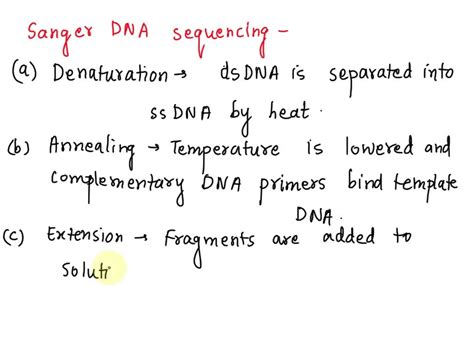 Sanger DNA sequencing -
(a) Denaturation → dsDNA is separated into
ssDNA by heat.
(b) Annealing → Temperature is lowered and
complementary DNA primers bind template
DNA.
(c) Extension → Fragments are added to
soluti